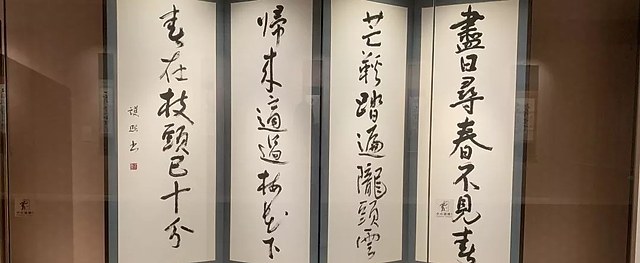 盡日尋春不見春
芒鞵踏遍隴頭雲
歸來適過梅花下
春在枝頭已十分
護熙書